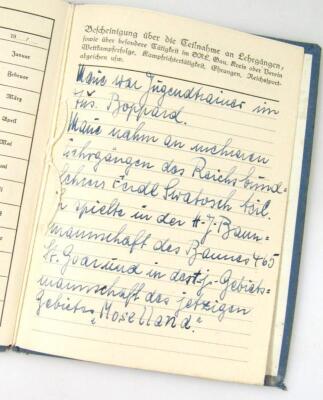 19 /
Januar
Februar
März
April
Mai
Juni
Juli
Bescheinigung über die Teilnahme an Lehrgängen,
sowie über besondere Tätigkeit im DRL, Gau, Kreis oder Verein
Wettkampferfolge, Kampfrichtertätigkeit, Ehrungen, Reichssport-
abzeichen usw.
Maue war Jugendtrainer im
Boppard.
Maue nahm an mehreren
Lehrgängen des Reichsbund-
lehrers Ferdl Swatosch teil.
spielte in der H-J-Bann-
mannschaft des Bannes 465
St. Goar und in der H-J-Gebiets-
mannschaft des jetzigen
Gebiets
„Moselland."